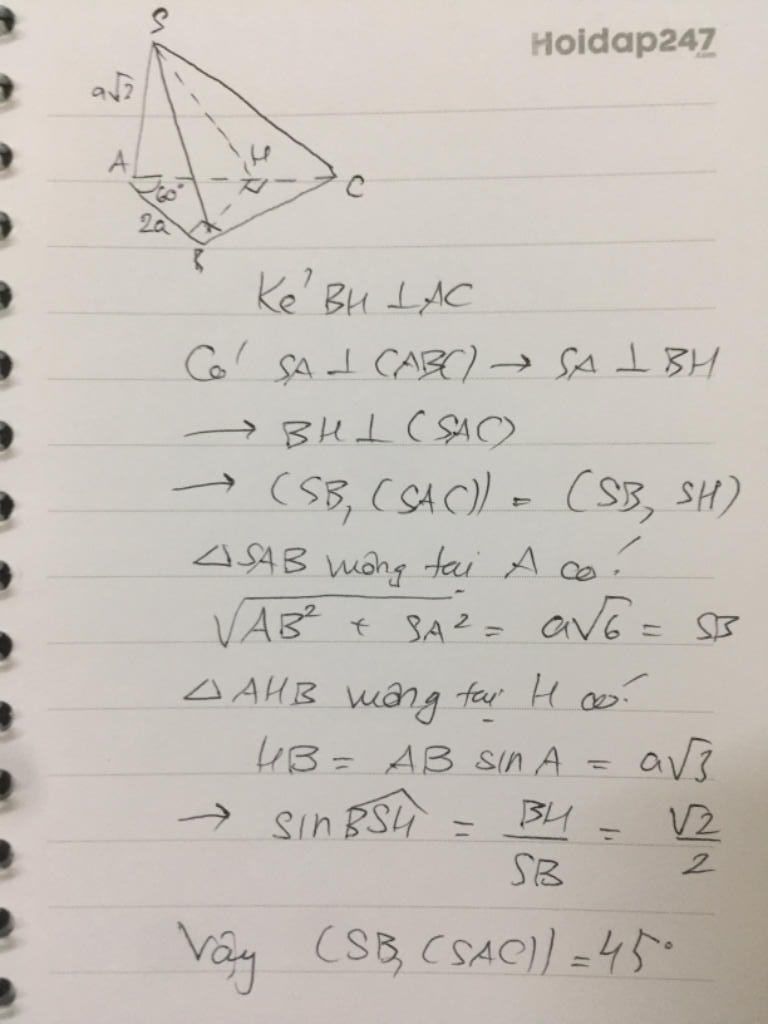 Hoidap247
.com
S
a√2
A
H
60°
C
2a
B
Kẻ BH ⊥ AC
Có SA ⊥ (ABC) → SA ⊥ BH
→ BH ⊥ (SAC)
→ (SB, (SAC)) = (SB, SH)
△SAB vuông tại A có:
√(AB² + SA²) = a√6 = SB
△AHB vuông tại H có:
HB = AB sin A = a√3
→ sin BSH = BH/SB = √2/2
Vậy (SB, (SAC)) = 45°